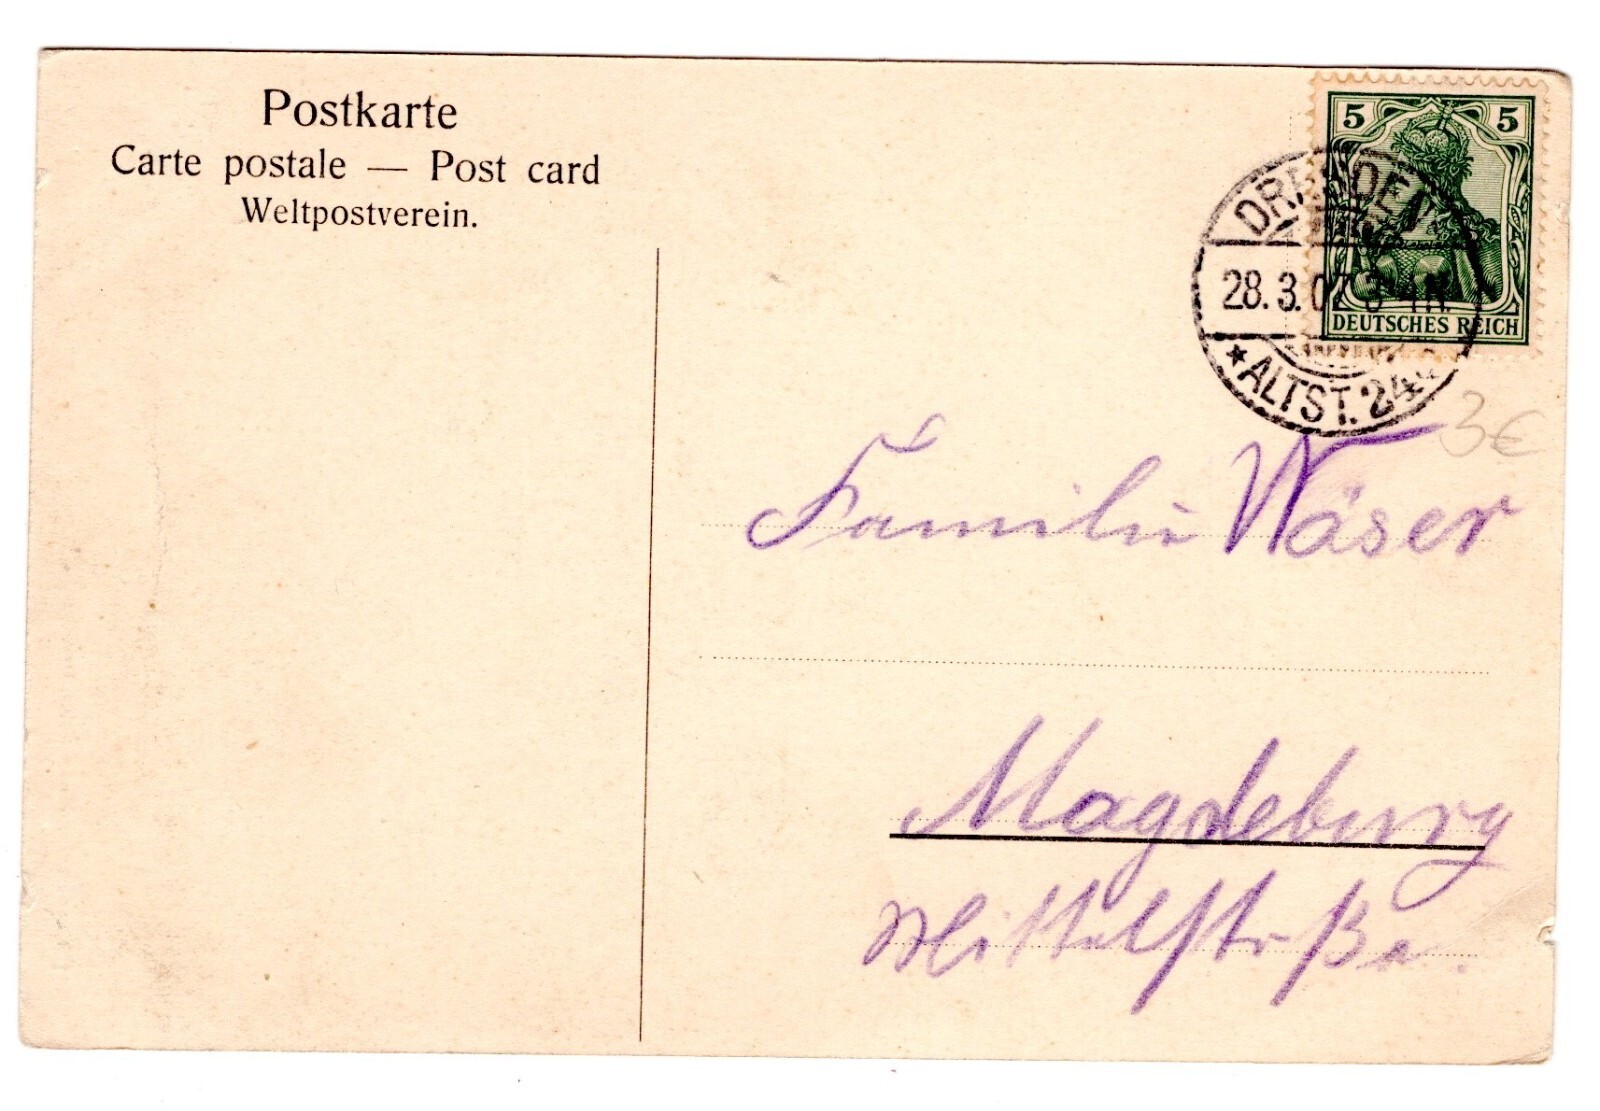 Postkarte
Carte postale — Post card
Weltpostverein.
5 5
DEUTSCHES REICH
DRESDEN
28. 3. 07
★ ALTST. 24
3€
Familie Wäser
Magdeburg
Mittelstraße.